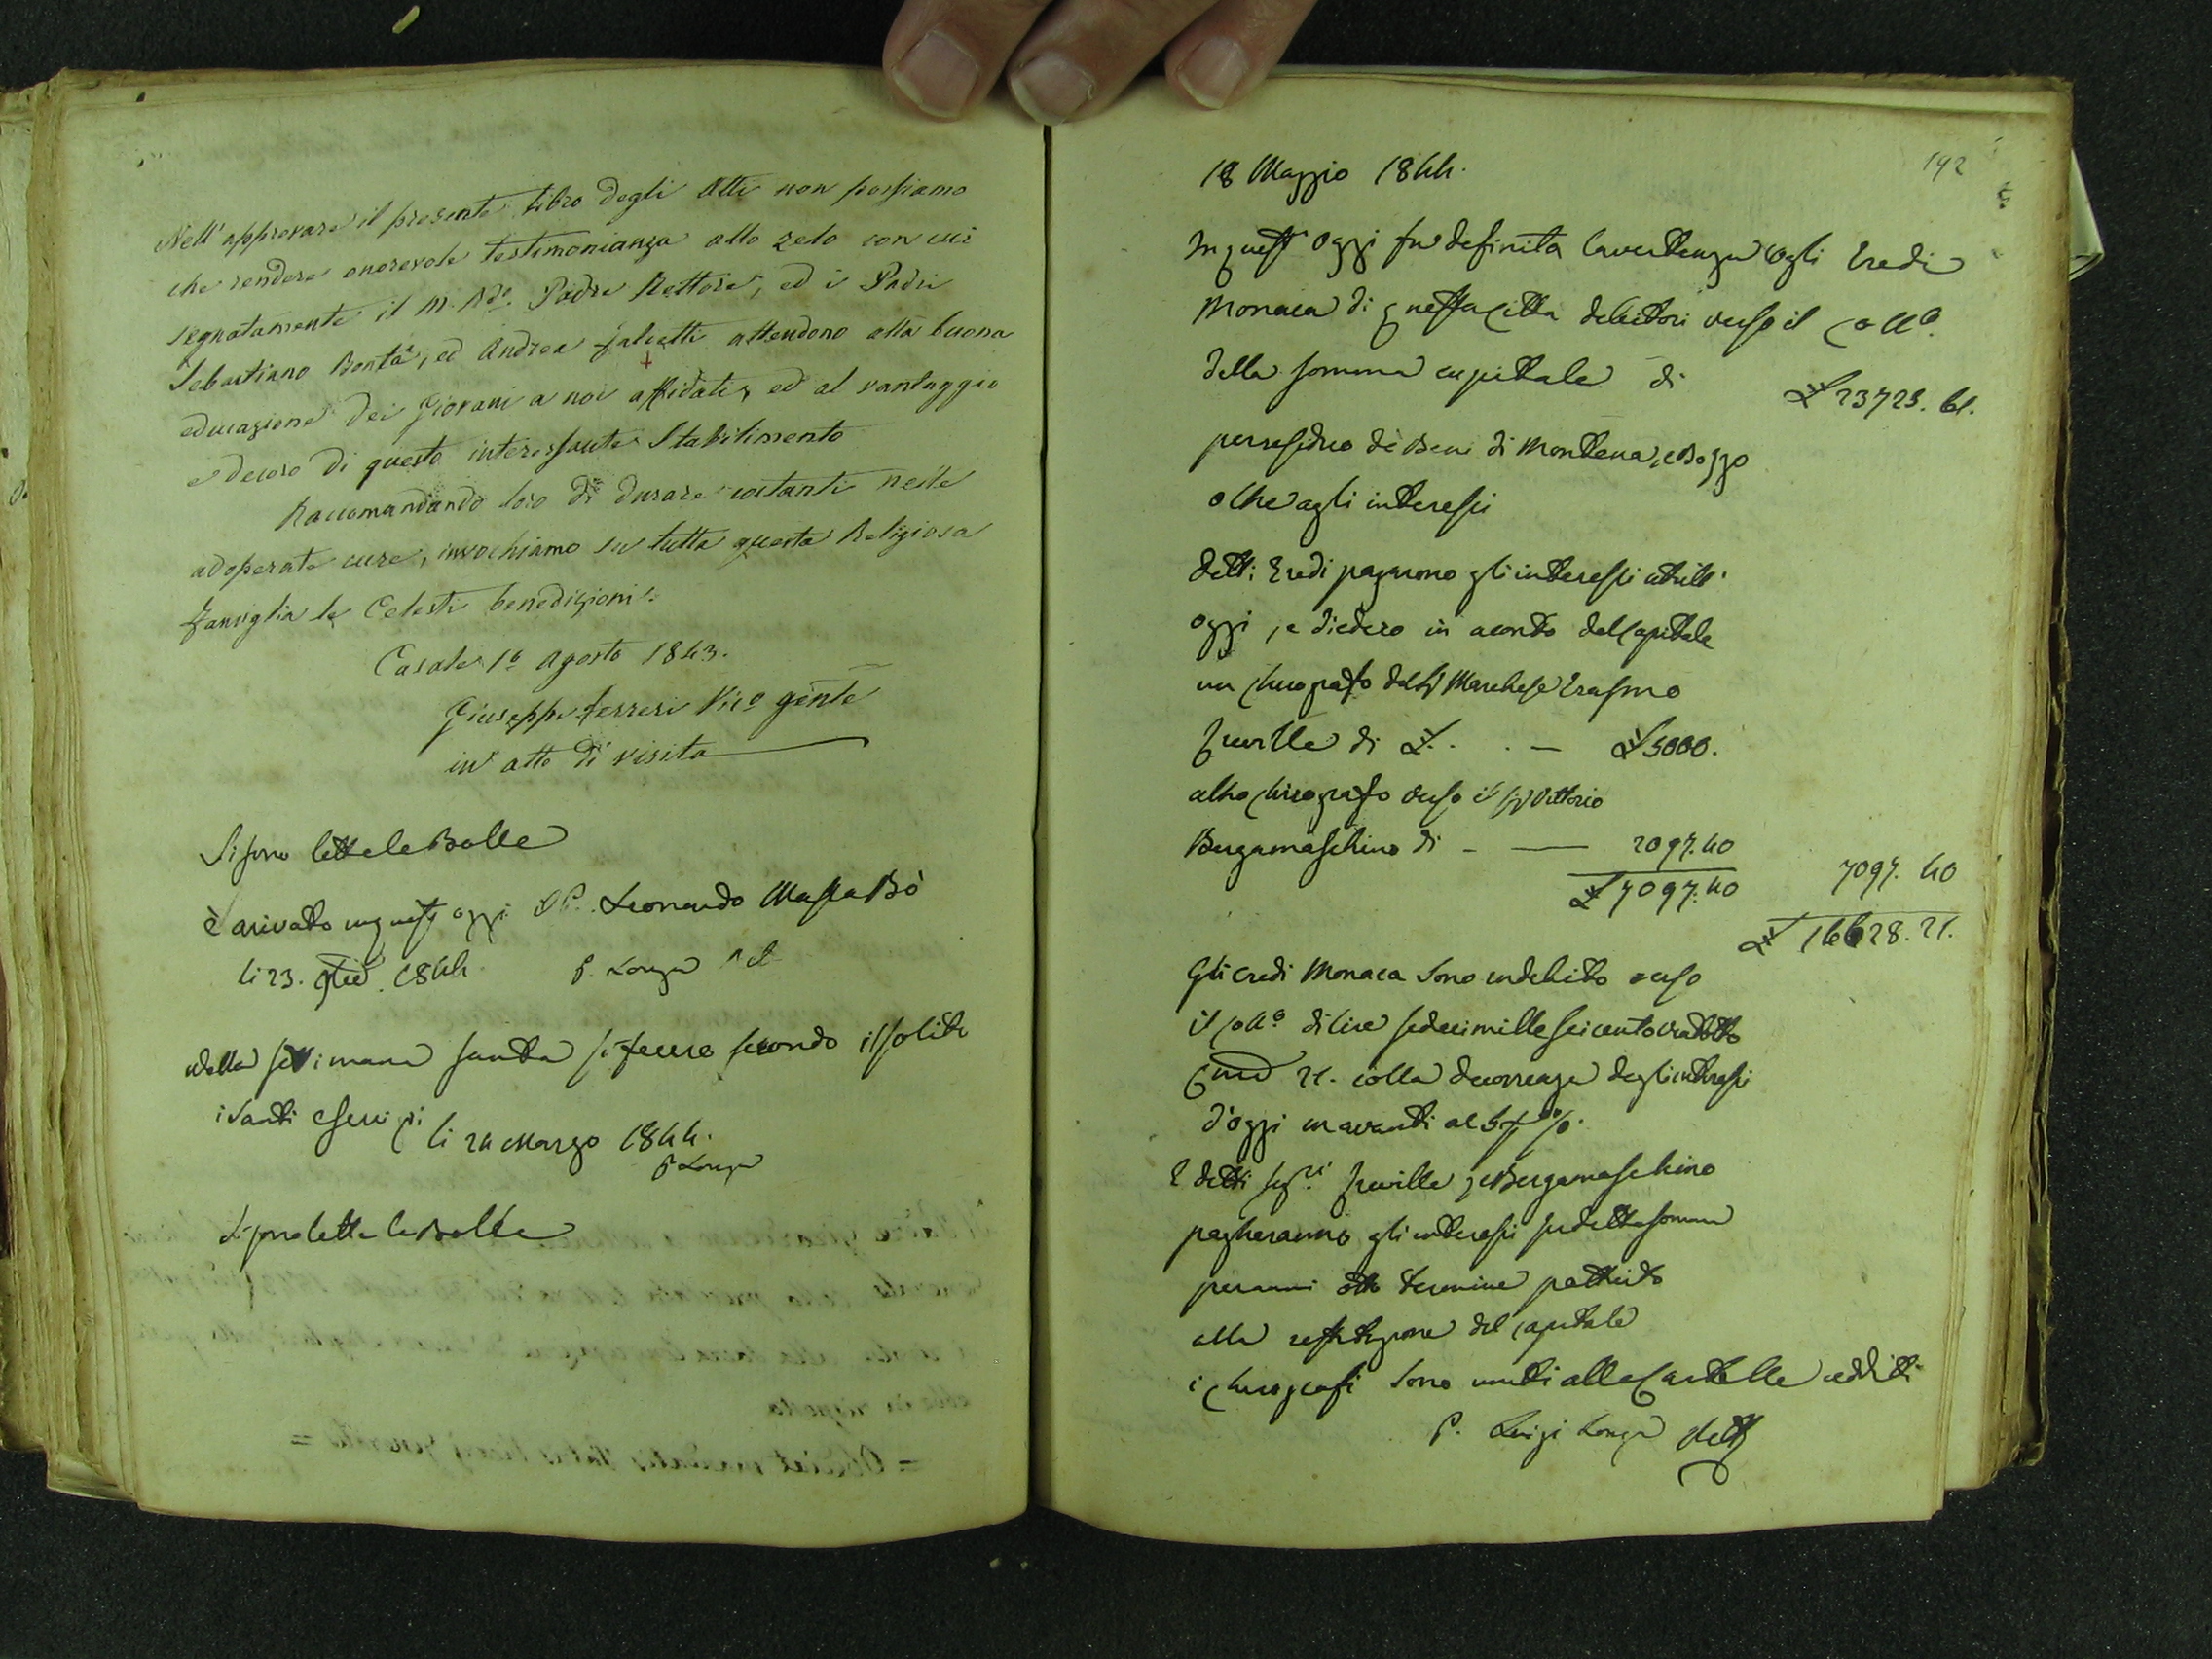 Nell' approvare il presente Libro degli Atti non possiamo
che rendere onorevole testimonianza allo zelo con cui
segnatamente il M. Rdo. Padre Rettore, ed i Padri
Sebastiano Bontà, ed Andrea Falcetti attendono alla buona
educazione dei Giovani a noi affidati, ed al vantaggio
e decoro di questo interessante Stabilimento
Raccomandando loro di durare costanti nelle
adoperate cure, invochiamo su tutta questa Religiosa
Famiglia le Celesti benedizioni.
Casale 1º Agosto 1843.
Giuseppe Ferreri Vico gente
in atto di visita
Si sono lette le Bolle
è arivato oggi il P. Leonardo
li 23. 1844 P. Longa
Nella settimana santa si fecero secondo il solito
i Santi esercizi
li 24 Marzo 1844.
P Longa
Si sono lette le Bolle
192
18 Maggio 1844.
In quest' oggi fu definita la vertenza cogli Eredi
Monaca di questa città debitori verso il Collo.
della somma capitale di £ 23725. 61.
per residuo de Beni di e Bozzo
oltre agli interessi
detti Eredi pagarono gli interessi
oggi, e diedero in aconto del Capitale
un chirografo del Sigr Marchese Erasmo
di £. . — £ 5000.
altro chirografo verso il Sigr Vittorio
Bergamaschino di — 2097.40
£ 7097.40 7097. 40
£ 16628. 21.
Gli eredi Monaca sono in debito verso
il Collo di lire sedici mille seicento ventotto
21. colla decorrenza degli interessi
d'oggi in avanti al
E detti Sigri e Bergamaschino
pagheranno gli interessi su detta somma
per anni otto termine pattuito
alla restituzione del capitale
i chirografi sono uniti alle Cartelle
P. Luigi Longa Rett